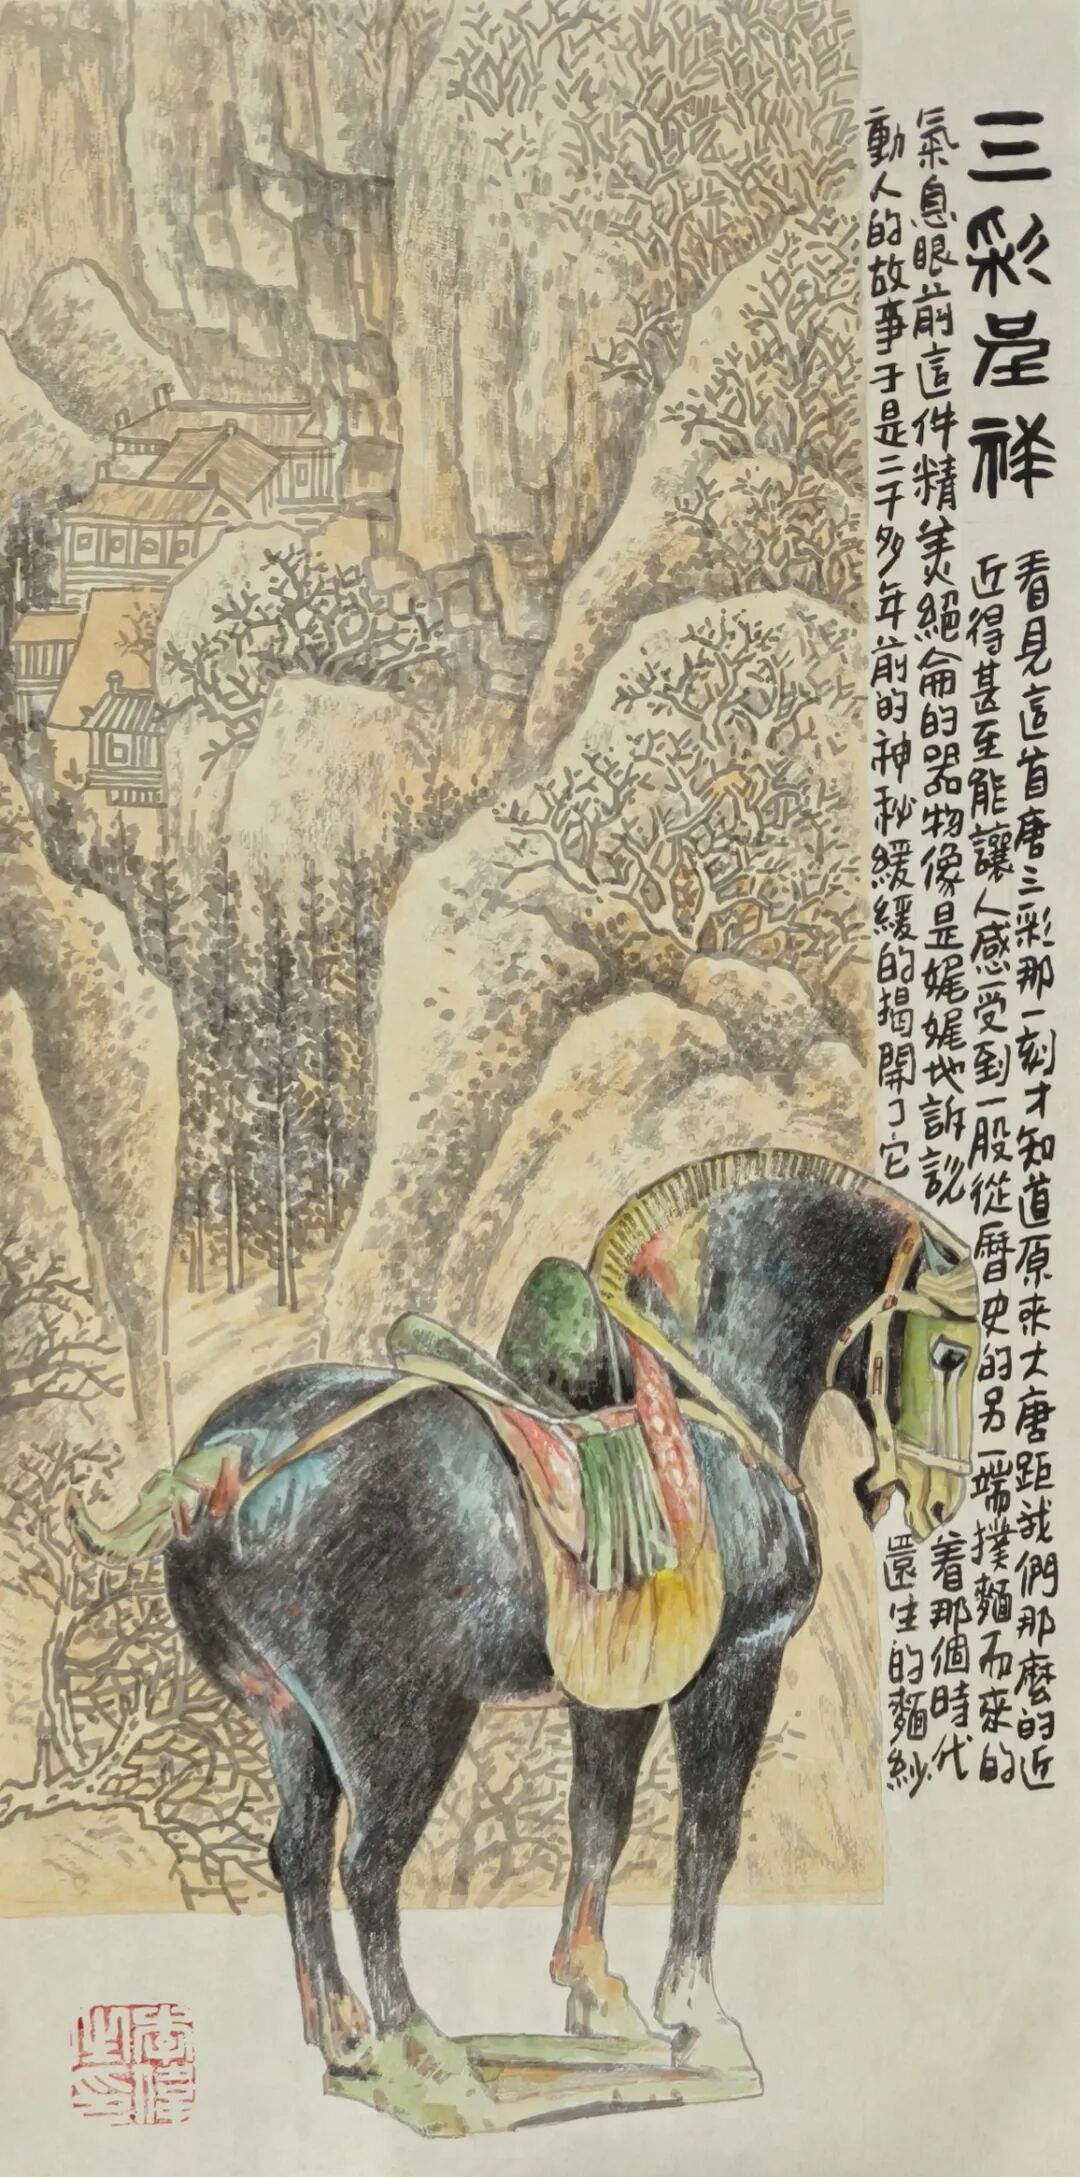 三彩呈祥
看見這首唐三彩那一刻才知道原來大唐距我們那麽的近
近得甚至能讓人感受到一股從曆史的另一端撲麵而來的
氣息眼前這件精美絕侖的器物像是娓娓地訴説着那個時代
動人的故事于是二千多年前的神秘緩緩的揭開了它還生的麵紗